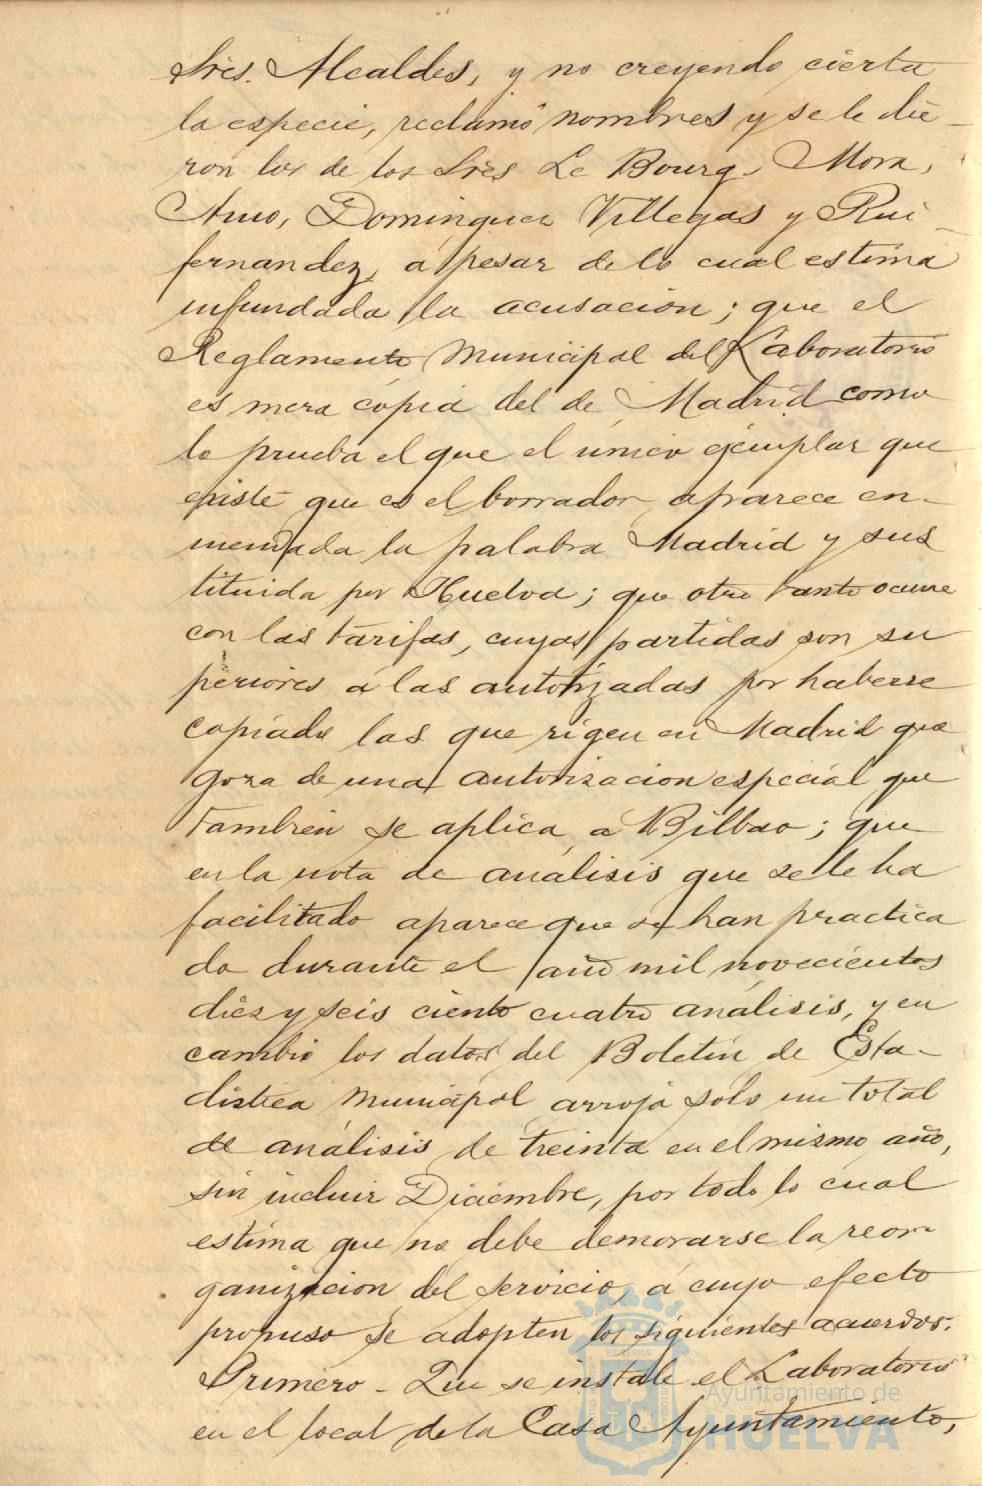 Sres. Alcaldes, y no creyendo cierta
la especie, reclamó nombres y se le die-
ron los de los Sres Le Bourg, Mora,
Amo, Dominguez Villegas y Rui-
fernandez, á pesar de lo cual estima
infundada la acusación; que el
Reglamento Municipal del Laboratorio
es mera cópia del de Madrid como
lo prueba el que el único ejemplar que
existe que es el borrador aparece en-
mendada la palabra Madrid y sus
tituida por Huelva; que otro tanto ocurre
con las tarifas, cuyas partidas son su
periores á las autorizadas por haberse
copiado las que rigen en Madrid que
goza de una autorizacion especial que
tambien se aplica á Bilbao; que
en la nota de análisis que se le ha
facilitado aparece que se han practica
do durante el año mil novecientos
diez y seis ciento cuatro análisis, y en
cambio los datos del Boletin de Esta-
distica Municipal arroja solo un total
de análisis de treinta en el mismo año,
sin incluir Diciembre, por todo lo cual
estima que no debe demorarse la reor-
ganización del servicio, á cuyo efecto
propuso se adopten los siguientes acuerdos.
Primero - Que se instale el Laboratorio
en el local de la Casa Ayuntamiento,
Ayuntamiento de
HUELVA